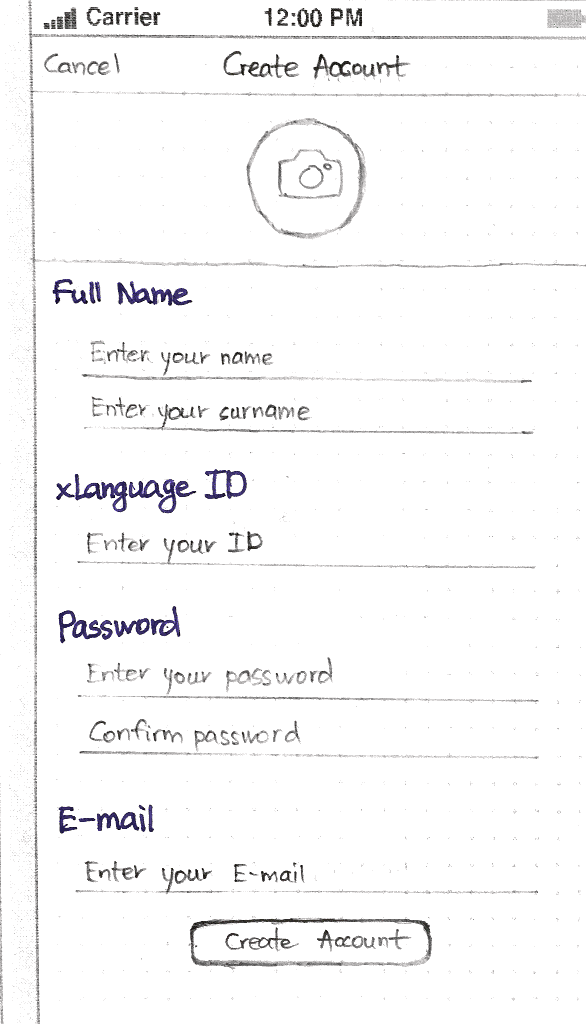 Carrier 12:00 PM
Cancel Create Account
Full Name
Enter your name
Enter your surname
xLanguage ID
Enter your ID
Password
Enter your password
Confirm password
E-mail
Enter your E-mail
Create Account